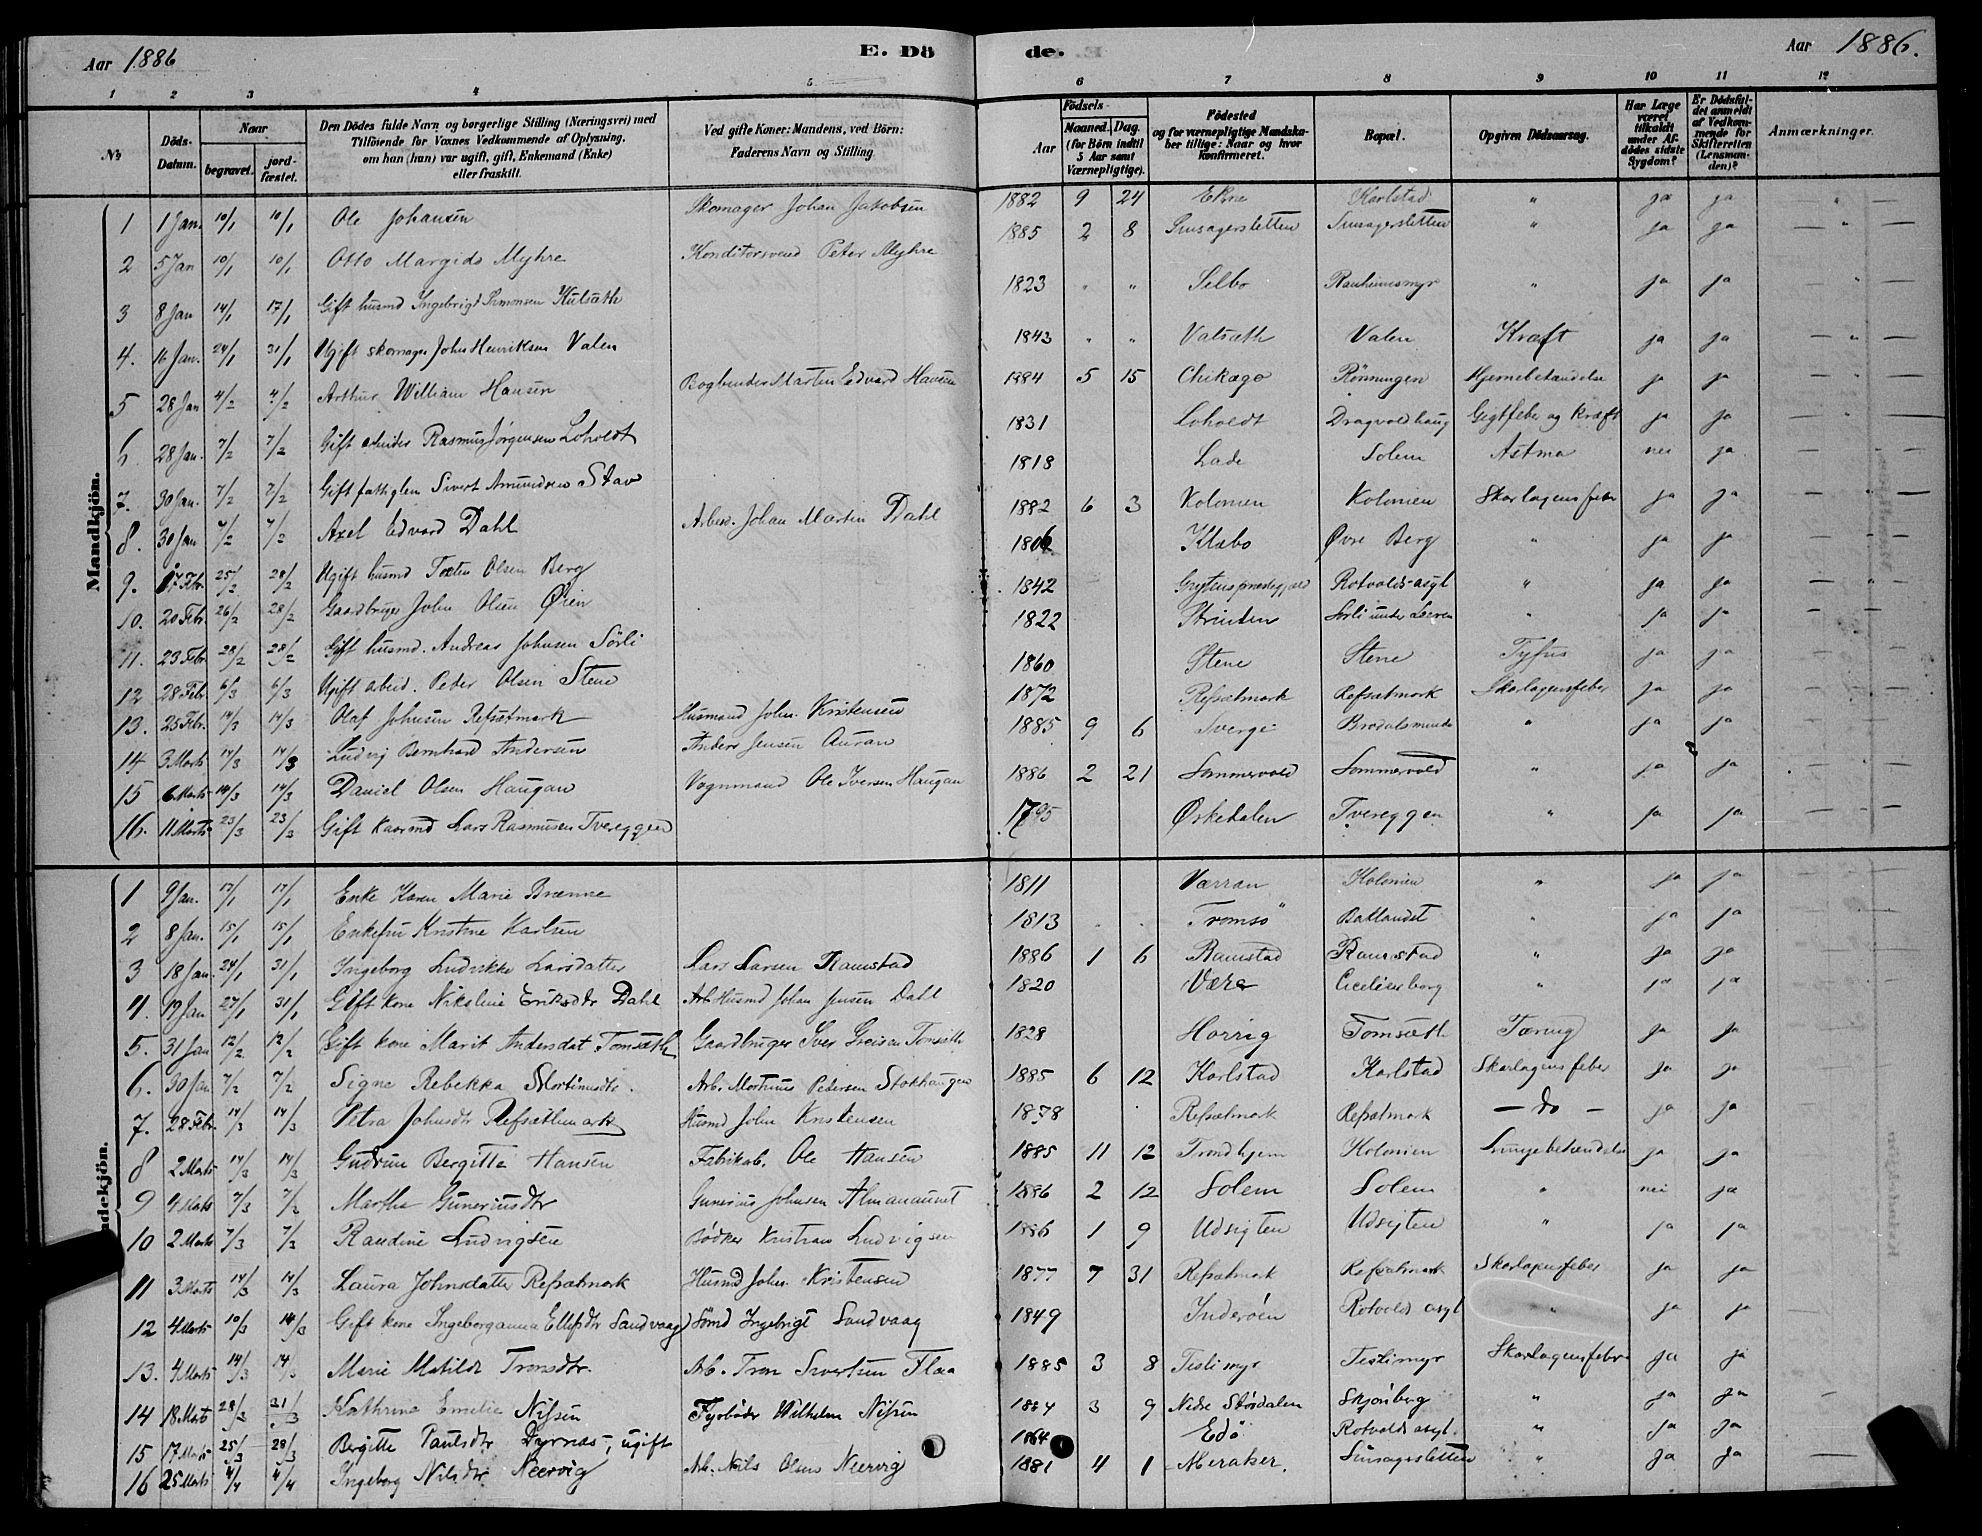 Aar 1886
E. Dö
de.
Aar 1886.
1 2 3 4 5 6 7 8 9 10 11 12
No
Döds-Datum.
Naar
begravet.
jord-fæstet.
Den Dödes fulde Navn og borgerlige Stilling (Næringsvei) med
Tilföiende for Voxnes Vedkommende af Oplysning,
om han (hun) var ugift, gift, Enkemand (Enke)
eller fraskilt.
Ved gifte Koner: Mandens, ved Börn:
Faderens Navn og Stilling
Födsels-
Aar
Maaned. Dag.
(for Börn indtil
5 Aar samt
Værnepligtige).
Födested
og for værnepligtige Mandska-
ber tillige: Naar og hvor
konfirmeret.
Bopæl.
Opgiven Dödsaarsag.
Har Læge
været
tilkaldt
under Af-
dödes sidste
Sygdom?
Er Dödsfal-
det anmeldt
af Vedkom-
mende for
Skifteretten
(Lensman-
den)?
Anmærkninger.
Mandkjön.
1 1 Jan. 10/1 10/1 Ole Johansen Skomager Johan Jakobsen 1882 9 24 Ekne Karlstad " ja ja
2 5 Jan 10/1 10/1 Otto Margido Myhre Konditorsvend Peter Myhre 1885 2 8 " ja ja
3 8 Jan 14/1 17/1 Gift husmd Ingebrigt Simonsen Kulsæth 1823 " " Selbo Ranheimsmyr " ja ja
4. 24/1 31/1 Ugift skomager John Henriksen Valen 1843 " " Valsæth Valen Kræft ja ja
5 28 Jan 4/2 4/2 Arthur William Hansen Bogbinder Martin Edvard Hansen 1884 5 15 Chikago Rönningen Hjernebetændelse ja ja
6 28 Jan. 7/2 7/2 Gift arbeider Rasmus Jörgensen Loholdt 1831 Loholdt Dragvoldhaug Gigtfeber og kræft ja ja
7. 30 Jan. 7/2 7/2 Gift fattiglem Sivert Amundsen Stav 1818 Lade Solem Astma nei ja
8. 30 Jan 7/2 7/2 Axel Edvard Dahl Arbeid. Johan Martin Dahl 1882 6 3 Kolonien Kolonien Skarlagensfeber ja ja
9. 17 Febr. 25/2 28/2 Ugift husmd Olsen Berg 1806 Klæbo Øvre Berg " ja ja
10. 20 Febr. 26/2 28/2 Gaardbruger John Olsen Øien 1842 Grytens præstegjæld Rotvolds-asyl " ja ja
11. 23 Febr. 28/2 28/2 Gift husmd. Andreas Johnsen Sörli 1822 Strinden Sörli under Leeren " ja ja
12 28 Feb 6/3 6/3 Ugift arbeid. Peder Olsen Stene 1860 Stene Stene Tyfus ja ja
13. 25 Febr. 14/3 14/3 Olaf Johnsen Refsætmark Husmand John Kristensen 1872 Refsætmark Refsætmark Skarlagensfeber ja ja
14 3 Marts 14/3 14/3 Ludvig Bernhard Andersen Anders Jensen Auran 1885 9 6 Sverge " ja ja
15 6 Marts 14/3 14/3 Daniel Olsen Haugan Vognmand Ole Iversen Haugan 1886 2 21 Sommervold Sommervold " ja ja
16. 11 Marts 23/3 23/3 Gift kaarmd Lars Rasmusen Tvereggen 1795 Ørkedalen Tvereggen " ja ja
ndekjön.
1 9 Jan. 17/1 17/1 Enke Karen Marie Brænne 1811 Værran Kolonien " ja ja
2 8 Jan. 15/1 15/1 Enkefru Kristine Karlsen 1813 Tromsö Baklandet " ja ja
3 18 Jan 24/1 31/1 Ingeborg Ludvikke Larsdatter Lars Larsen Ramstad 1886 1 6 Ramstad Ramstad " ja ja
4. 19 Jan 27/1 31/1 Gift kone Nikoline Eriksdtr Dahl Arb Husmd Johan Jensen Dahl 1820 Være Ceciliesborg " ja ja
5. 31 Jan 12/2 12/2 Gift kone Marit Andersdat Tomsæth Gaardbruger Iver Tomsæth 1828 Horrig Tomsæth Tæring ja ja
6. 30 Jan 7/2 7/2 Signe Rebekka Mortinusdtr. Arb. Mortinus Pedersen Stokhaugen 1885 6 12 Karlstad Karlstad Skarlagensfeber ja ja
7. 28 Febr. 14/3 14/3 Petra Johnsdtr Refsæthmark Husmd John Kristensen 1878 Refsætmark Refsætmark - do - ja ja
8 2 Marts 14/3 14/3 Gudrun Bergitte Hansen Fabrikab. Ole Hansen 1885 11 12 Trondhjem Kolonien Lungebetændelse ja ja
9 4 Marts 7/3 7/3 Martha Guneriusdtr Gunerius Johnsen 1886 2 12 Solem Solem " nei ja
10 2 Marts 7/3 7/3 Randine Ludvigsen Bödker Kristian Ludvigsen 1886 1 9 Udsigten Udsigten " ja ja
11 3 Marts 14/3 14/3 Laura Johnsdatter Refsætmark Husmd John Kristensen 1877 7 31 Refsætmark Refsætmark Skarlagensfeber ja ja
12 4 Marts 10/3 14/3 Gift kone Ingeborganna Ellefsdtr Sandvaag Sömd Ingebrigt Sandvaag 1849 Inderöen Rotvolds asyl " ja ja
13. 4 Marts 14/3 14/3 Marie Matilde Tronsdtr. Arb. Tron Sivertsen Flaa 1885 3 8 Teslimyr Teslimyr Skarlagensfeber ja ja
14 18 Marts 28/3 31/3 Kathrine Emelie Nissen Fyrböder Wilhelm Nissen 1884 3 9 Nedre Stördalen Skjönberg " ja ja
15 17 Marts 25/3 28/3 Bergitte Paulsdtr Dyrnæs, ugift 1864 Edö Rotvolds asyl. " ja ja
16 25 Marts 4/4 4/4 Ingeborg Nilsdtr Neervig Arb. Nils Olsen Neervig 1881 4 1 Meraker. " ja ja